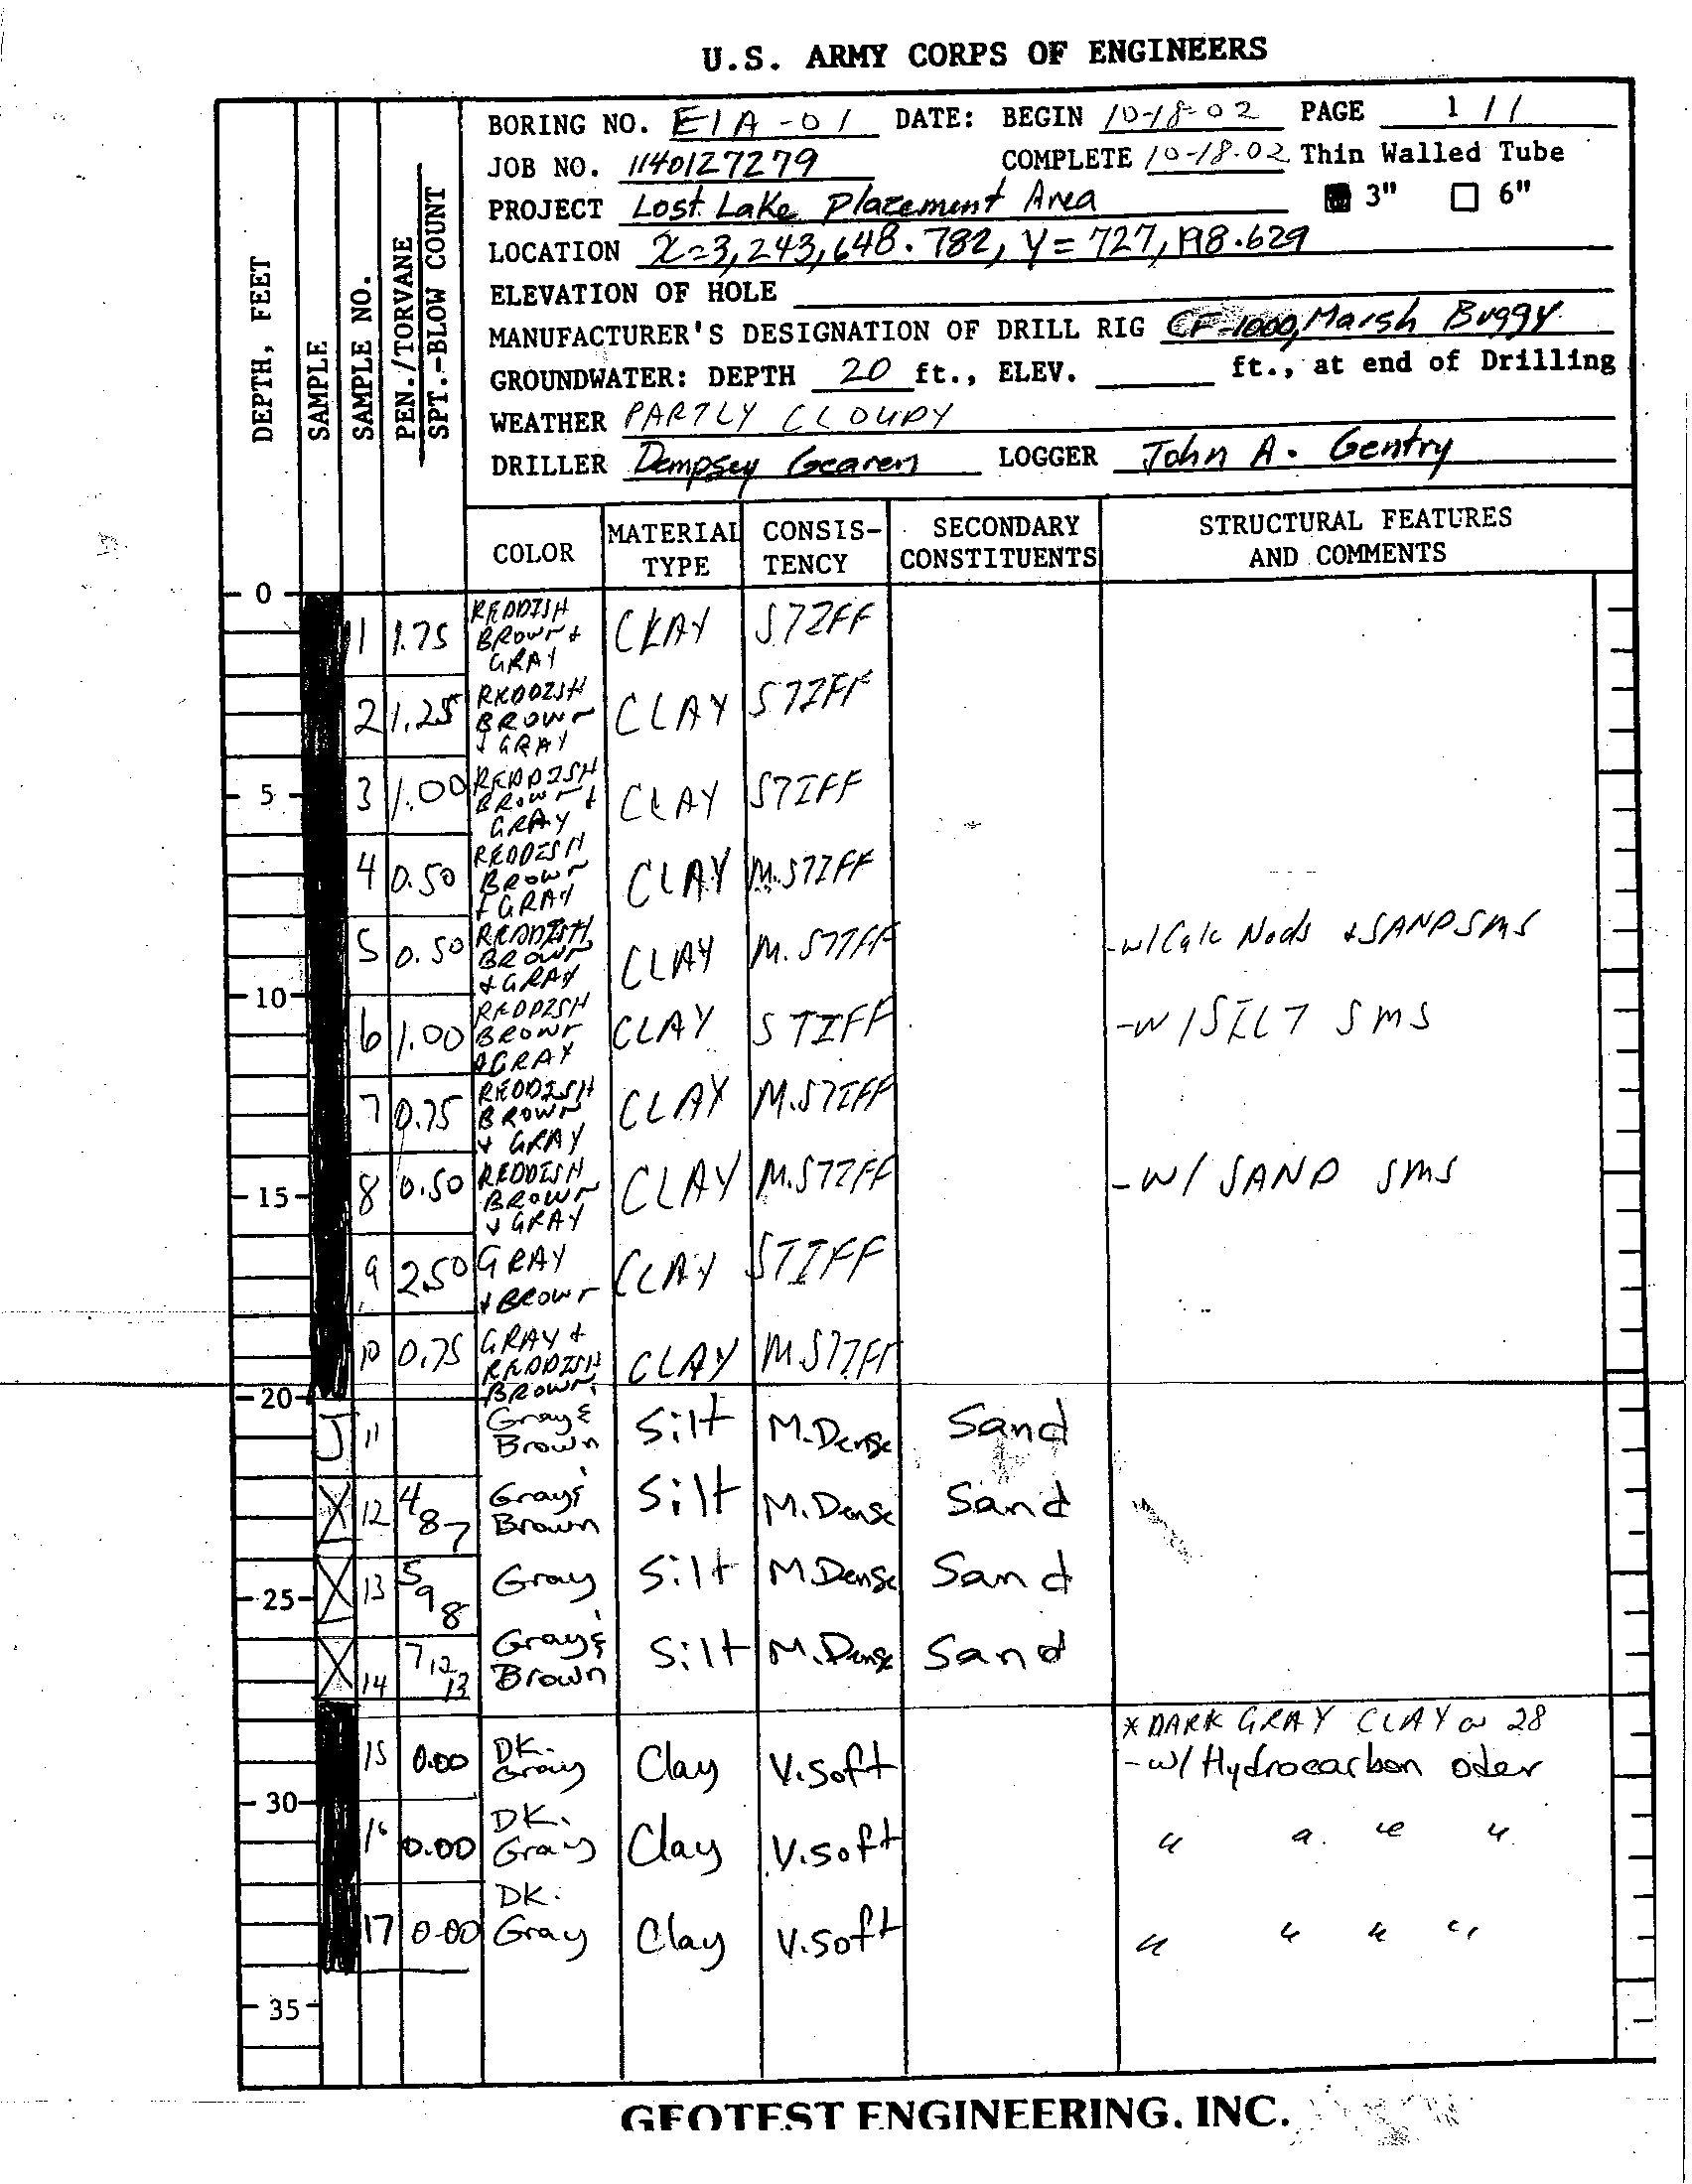 U.S. ARMY CORPS OF ENGINEERS
BORING NO. EIA-01 DATE: BEGIN 10-18-02 PAGE 1 / 1
JOB NO. 1140127279 COMPLETE 10-18-02 Thin Walled Tube
PROJECT Lost Lake Placement Area 3" 6"
LOCATION X=3,243,648.782, Y=727,198.629
ELEVATION OF HOLE
MANUFACTURER'S DESIGNATION OF DRILL RIG CF-1000, Marsh Buggy
GROUNDWATER: DEPTH 20 ft., ELEV. ft., at end of Drilling
WEATHER PARTLY CLOUDY
DRILLER Dempsey Gearen LOGGER John A. Gentry
DEPTH, FEET
SAMPLE
SAMPLE NO.
PEN./TORVANE
SPT.-BLOW COUNT
COLOR
MATERIAL TYPE
CONSIS-TENCY
SECONDARY CONSTITUENTS
STRUCTURAL FEATURES AND COMMENTS
0
1 1.75 REDDISH BROWN + GRAY CLAY STIFF
2 1.25 REDDISH BROWN + GRAY CLAY STIFF
5
3 1.00 REDDISH BROWN + GRAY CLAY STIFF
4 0.50 REDDISH BROWN + GRAY CLAY M.STIFF
5 0.50 REDDISH BROWN + GRAY CLAY M. STIFF -w/Calc Nods + SAND SMS
10
6 1.00 REDDISH BROWN + GRAY CLAY STIFF -W/SILT SMS
7 0.75 REDDISH BROWN + GRAY CLAY M.STIFF
15
8 0.50 REDDISH BROWN + GRAY CLAY M.STIFF -W/ SAND SMS
9 2.50 GRAY + BROWN CLAY STIFF
10 0.75 GRAY + REDDISH BROWN CLAY M STIFF
20
J 11 Gray & Brown Silt M.Dense Sand
12 4 8 7 Gray & Brown Silt M.Dense Sand
25
13 5 9 8 Gray Silt M.Dense Sand
14 7 12 13 Gray & Brown Silt M.Dense Sand
* DARK GRAY CLAY @ 28
15 0.00 DK. Gray Clay V.Soft -w/ Hydrocarbon oder
30
16 0.00 DK. Gray Clay V.Soft " " " "
17 0.00 DK. Gray Clay V.Soft " " " "
35
GEOTEST ENGINEERING, INC.